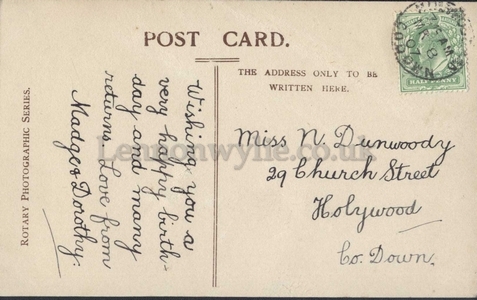 POST CARD.
THE ADDRESS ONLY TO BE
WRITTEN HERE.
ROTARY PHOTOGRAPHIC SERIES.
Wishing you a
very happy birth-
day and many
returns. Love from
Madge & Dorothy.
Miss N Dunwoody
29 Church Street
Holywood
Co. Down.
HALFPENNY
Lennonwylie.co.uk